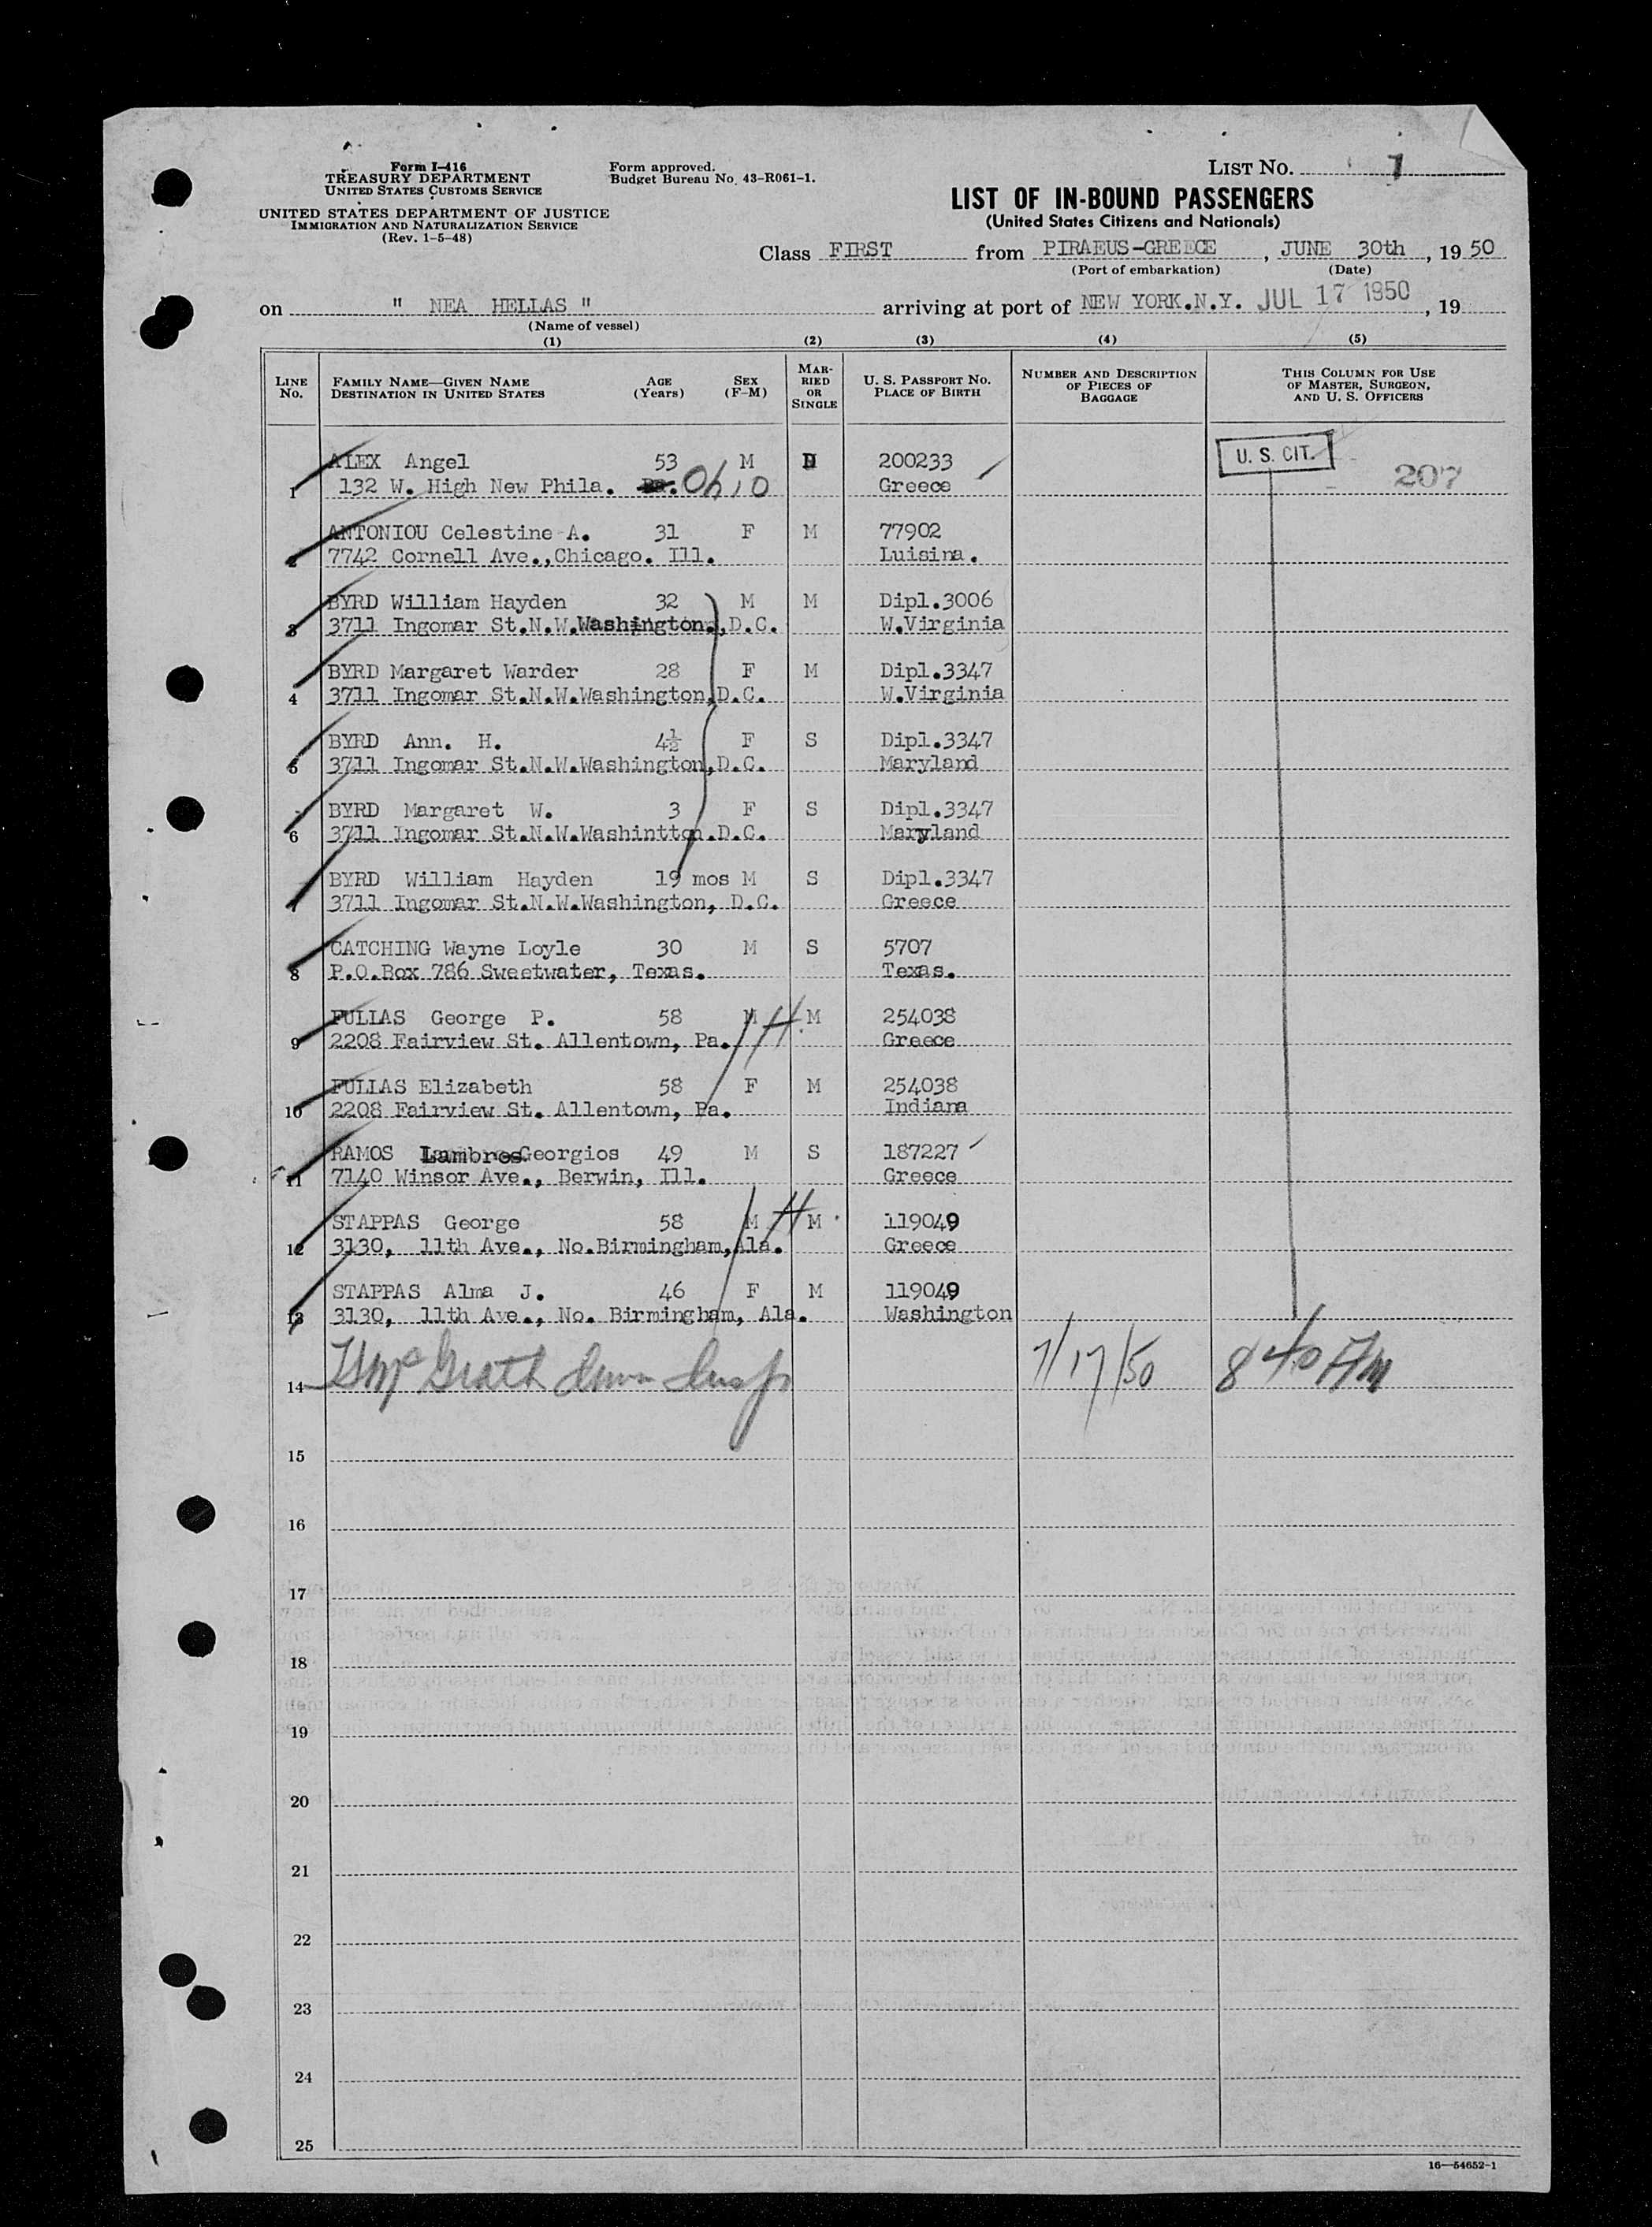 Form I-416
TREASURY DEPARTMENT
UNITED STATES CUSTOMS SERVICE
UNITED STATES DEPARTMENT OF JUSTICE
IMMIGRATION AND NATURALIZATION SERVICE
(Rev. 1-5-48)
Form approved.
Budget Bureau No. 43-R061-1.
LIST No. 1
LIST OF IN-BOUND PASSENGERS
(United States Citizens and Nationals)
Class FIRST from PIRAEUS-GREECE, JUNE 30th, 1950
(Port of embarkation) (Date)
on " NEA HELLAS " arriving at port of NEW YORK.N.Y. JUL 17 1950, 19
(Name of vessel)
(1) (2) (3) (4) (5)
LINE No. FAMILY NAME—GIVEN NAME DESTINATION IN UNITED STATES AGE (Years) SEX (F-M) MARRIED OR SINGLE U. S. PASSPORT No. PLACE OF BIRTH NUMBER AND DESCRIPTION OF PIECES OF BAGGAGE THIS COLUMN FOR USE OF MASTER, SURGEON, AND U. S. OFFICERS
ALEX Angel 53 M D 200233 U. S. CIT. 207
1 132 W. High New Phila. Pa. Ohio Greece
ANTONIOU Celestine A. 31 F M 77902
2 7742 Cornell Ave.,Chicago. Ill. Luisina.
BYRD William Hayden 32 M M Dipl.3006
3 3711 Ingomar St.N.W.Washington.,D.C. W.Virginia
BYRD Margaret Warder 28 F M Dipl.3347
4 3711 Ingomar St.N.W.Washington,D.C. W.Virginia
BYRD Ann. H. 4½ F S Dipl.3347
5 3711 Ingomar St.N.W.Washington,D.C. Maryland
BYRD Margaret W. 3 F S Dipl.3347
6 3711 Ingomar St.N.W.Washintton.D.C. Maryland
BYRD William Hayden 19 mos M S Dipl.3347
7 3711 Ingomar St.N.W.Washington, D.C. Greece
CATCHING Wayne Loyle 30 M S 5707
8 P.O.Box 786 Sweetwater, Texas. Texas.
FULIAS George P. 58 M H M 254038
9 2208 Fairview St. Allentown, Pa. Greece
FULIAS Elizabeth 58 F M 254038
10 2208 Fairview St. Allentown, Pa. Indiana
RAMOS Lambros Georgios 49 M S 187227
11 7140 Winsor Ave., Berwin, Ill. Greece
STAPPAS George 58 M H M 119049
12 3130, 11th Ave., No.Birmingham,Ala. Greece
STAPPAS Alma J. 46 F M 119049
13 3130, 11th Ave., No. Birmingham, Ala. Washington
14 McGrath Imm Insp 7/17/50 8 40 AM
15
16
17
18
19
20
21
22
23
24
25
16—54652-1